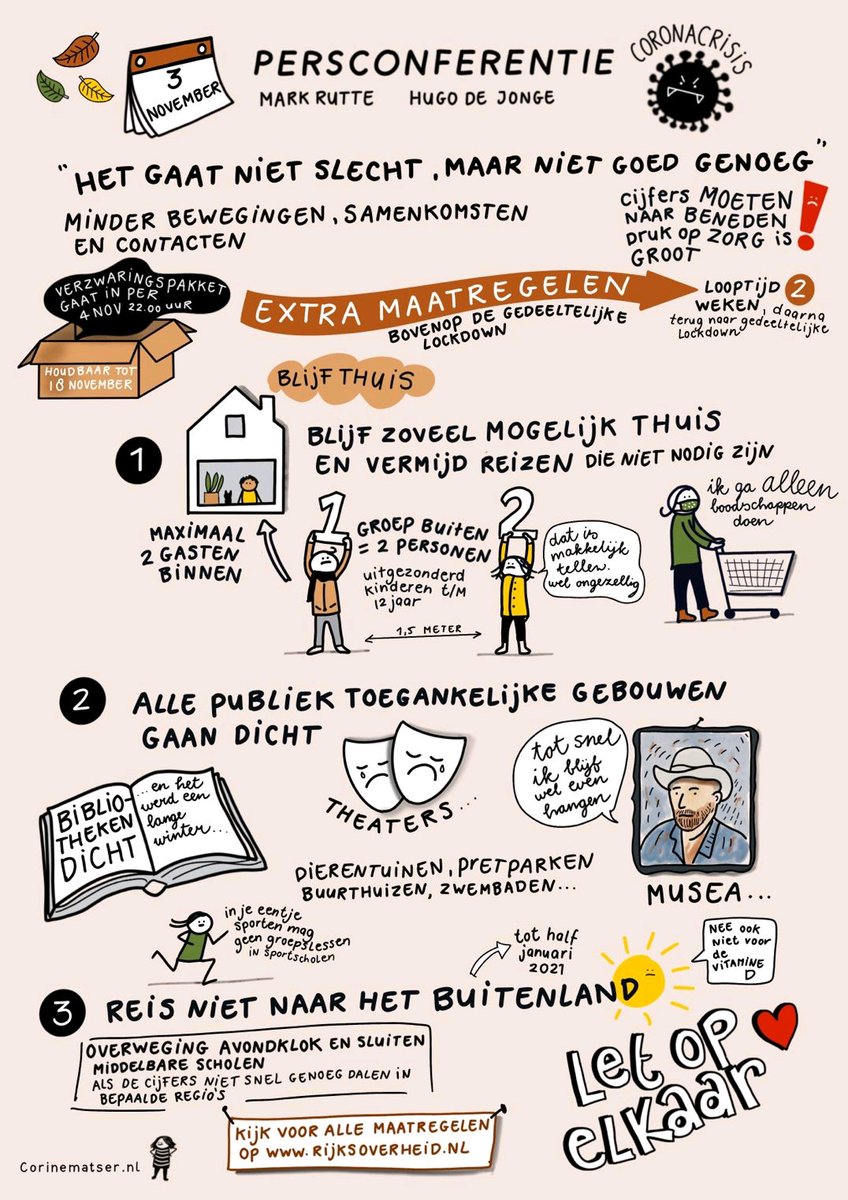 3
NOVEMBER
PERSCONFERENTIE
MARK RUTTE HUGO DE JONGE
CORONACRISIS
"HET GAAT NIET SLECHT, MAAR NIET GOED GENOEG"
MINDER BEWEGINGEN, SAMENKOMSTEN
EN CONTACTEN
CIJFERS MOETEN
NAAR BENEDEN
DRUK OP ZORG IS
GROOT
VERZWARINGSPAKKET
GAAT IN PER
4 NOV 22.00 UUR
HOUDBAAR TOT
18 NOVEMBER
EXTRA MAATREGELEN
BOVENOP DE GEDEELTELIJKE
LOCKDOWN
LOOPTIJD 2
WEKEN, daarna
terug naar gedeeltelijke
Lockdown
BLIJF THUIS
1
BLIJF ZOVEEL MOGELIJK THUIS
EN VERMIJD REIZEN DIE NIET NODIG ZIJN
MAXIMAAL
2 GASTEN
BINNEN
1
GROEP BUITEN
= 2 PERSONEN
uitgezonderd
kinderen t/m
12 jaar
1,5 METER
2
dat is
makkelijk
tellen.
wel ongezellig
ik ga alleen
boodschappen
doen
2
ALLE PUBLIEK TOEGANKELIJKE GEBOUWEN
GAAN DICHT
BIBLIO-
THEKEN
DICHT
...en het
werd een
lange
winter...
THEATERS...
tot snel
ik blijf
wel even
hangen
DIERENTUINEN, PRETPARKEN
BUURTHUIZEN, ZWEMBADEN...
MUSEA...
in je eentje
sporten mag
geen groepslessen
in sportscholen
tot half
januari
2021
NEE OOK
NIET VOOR
DE
VITAMINE
D
3
REIS NIET NAAR HET BUITENLAND
OVERWEGING AVONDKLOK EN SLUITEN
MIDDELBARE SCHOLEN
ALS DE CIJFERS NIET SNEL GENOEG DALEN IN
BEPAALDE REGIO'S
Let op
elkaar
KIJK VOOR ALLE MAATREGELEN
OP WWW.RIJKSOVERHEID.NL
Corinematser.nl